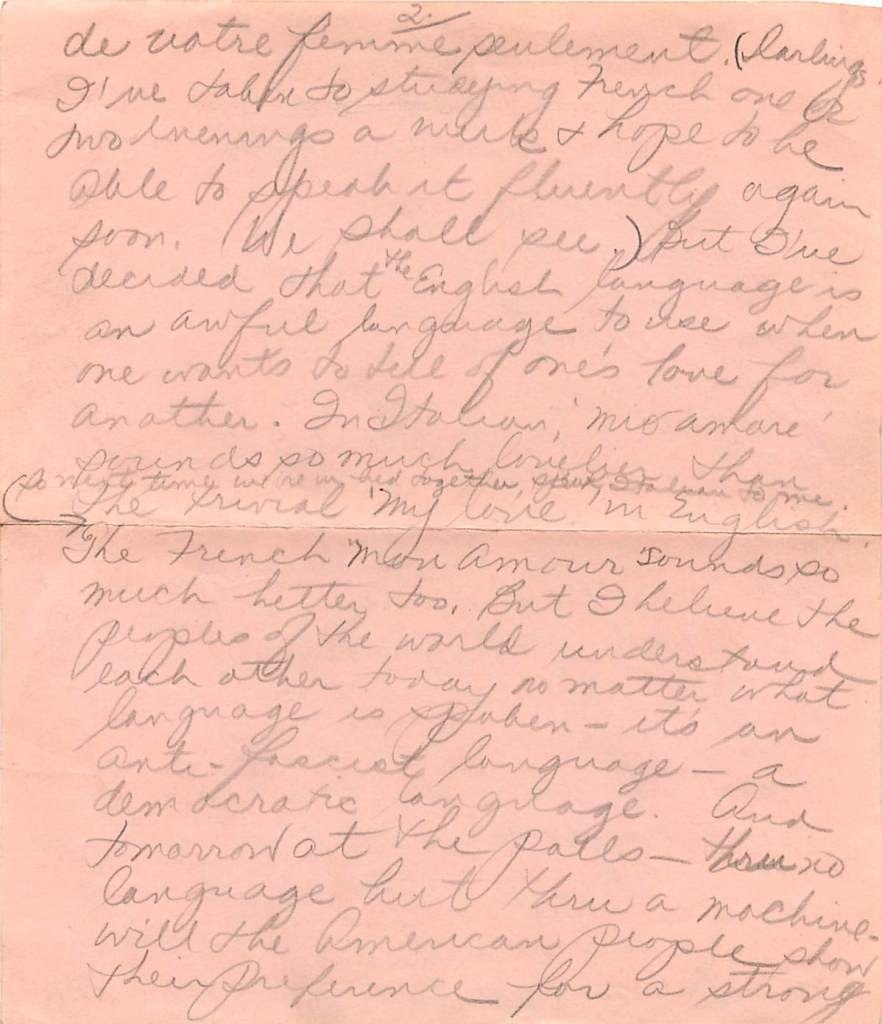 2.
de votre femme seulement. (Darling,
I've taken to studying French one or
two evenings a week & hope to be
able to speak it fluently again
soon. We shall see.) But I've
decided that the English language is
an awful language to use when
one wants to tell of one's love for
another. In Italian, 'mio amore'
sounds so much lovelier than
(so next time we're in bed together, speak Italian to me.
the trivial 'My love' in English.
The French "mon amour" sounds so
much better, too. But I believe the
peoples of the world understand
each other today no matter what
language is spoken – it's an
anti-fascist language – a
democratic language. And
tomorrow at the polls – thru no
language but thru a machine –
will the American people show
their preference for a strong